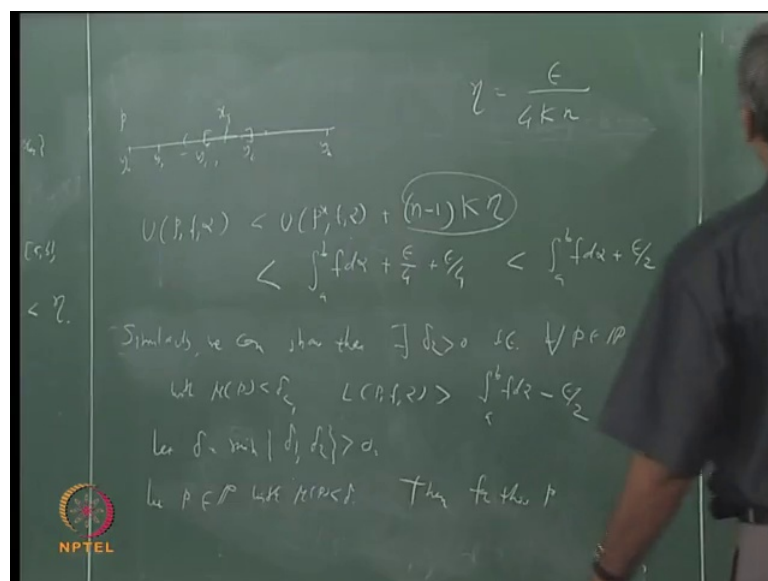 η = ε / 4Kn
P
x_j
U(P, f, α) < U(P*, f, α) + (n-1) K η
< ∫_a^b f dα + ε/4 + ε/4 < ∫_a^b f dα + ε/2
< η.
Similarly we can show that ∃ δ₂ > 0 s.t. ∀ P ∈ ℙ
with μ(P) < δ₂, L(P, f, α) > ∫_a^b f dα - ε/2
Let δ = min{δ₁, δ₂} > 0.
Let P ∈ ℙ with μ(P) < δ. Then for this P
NPTEL